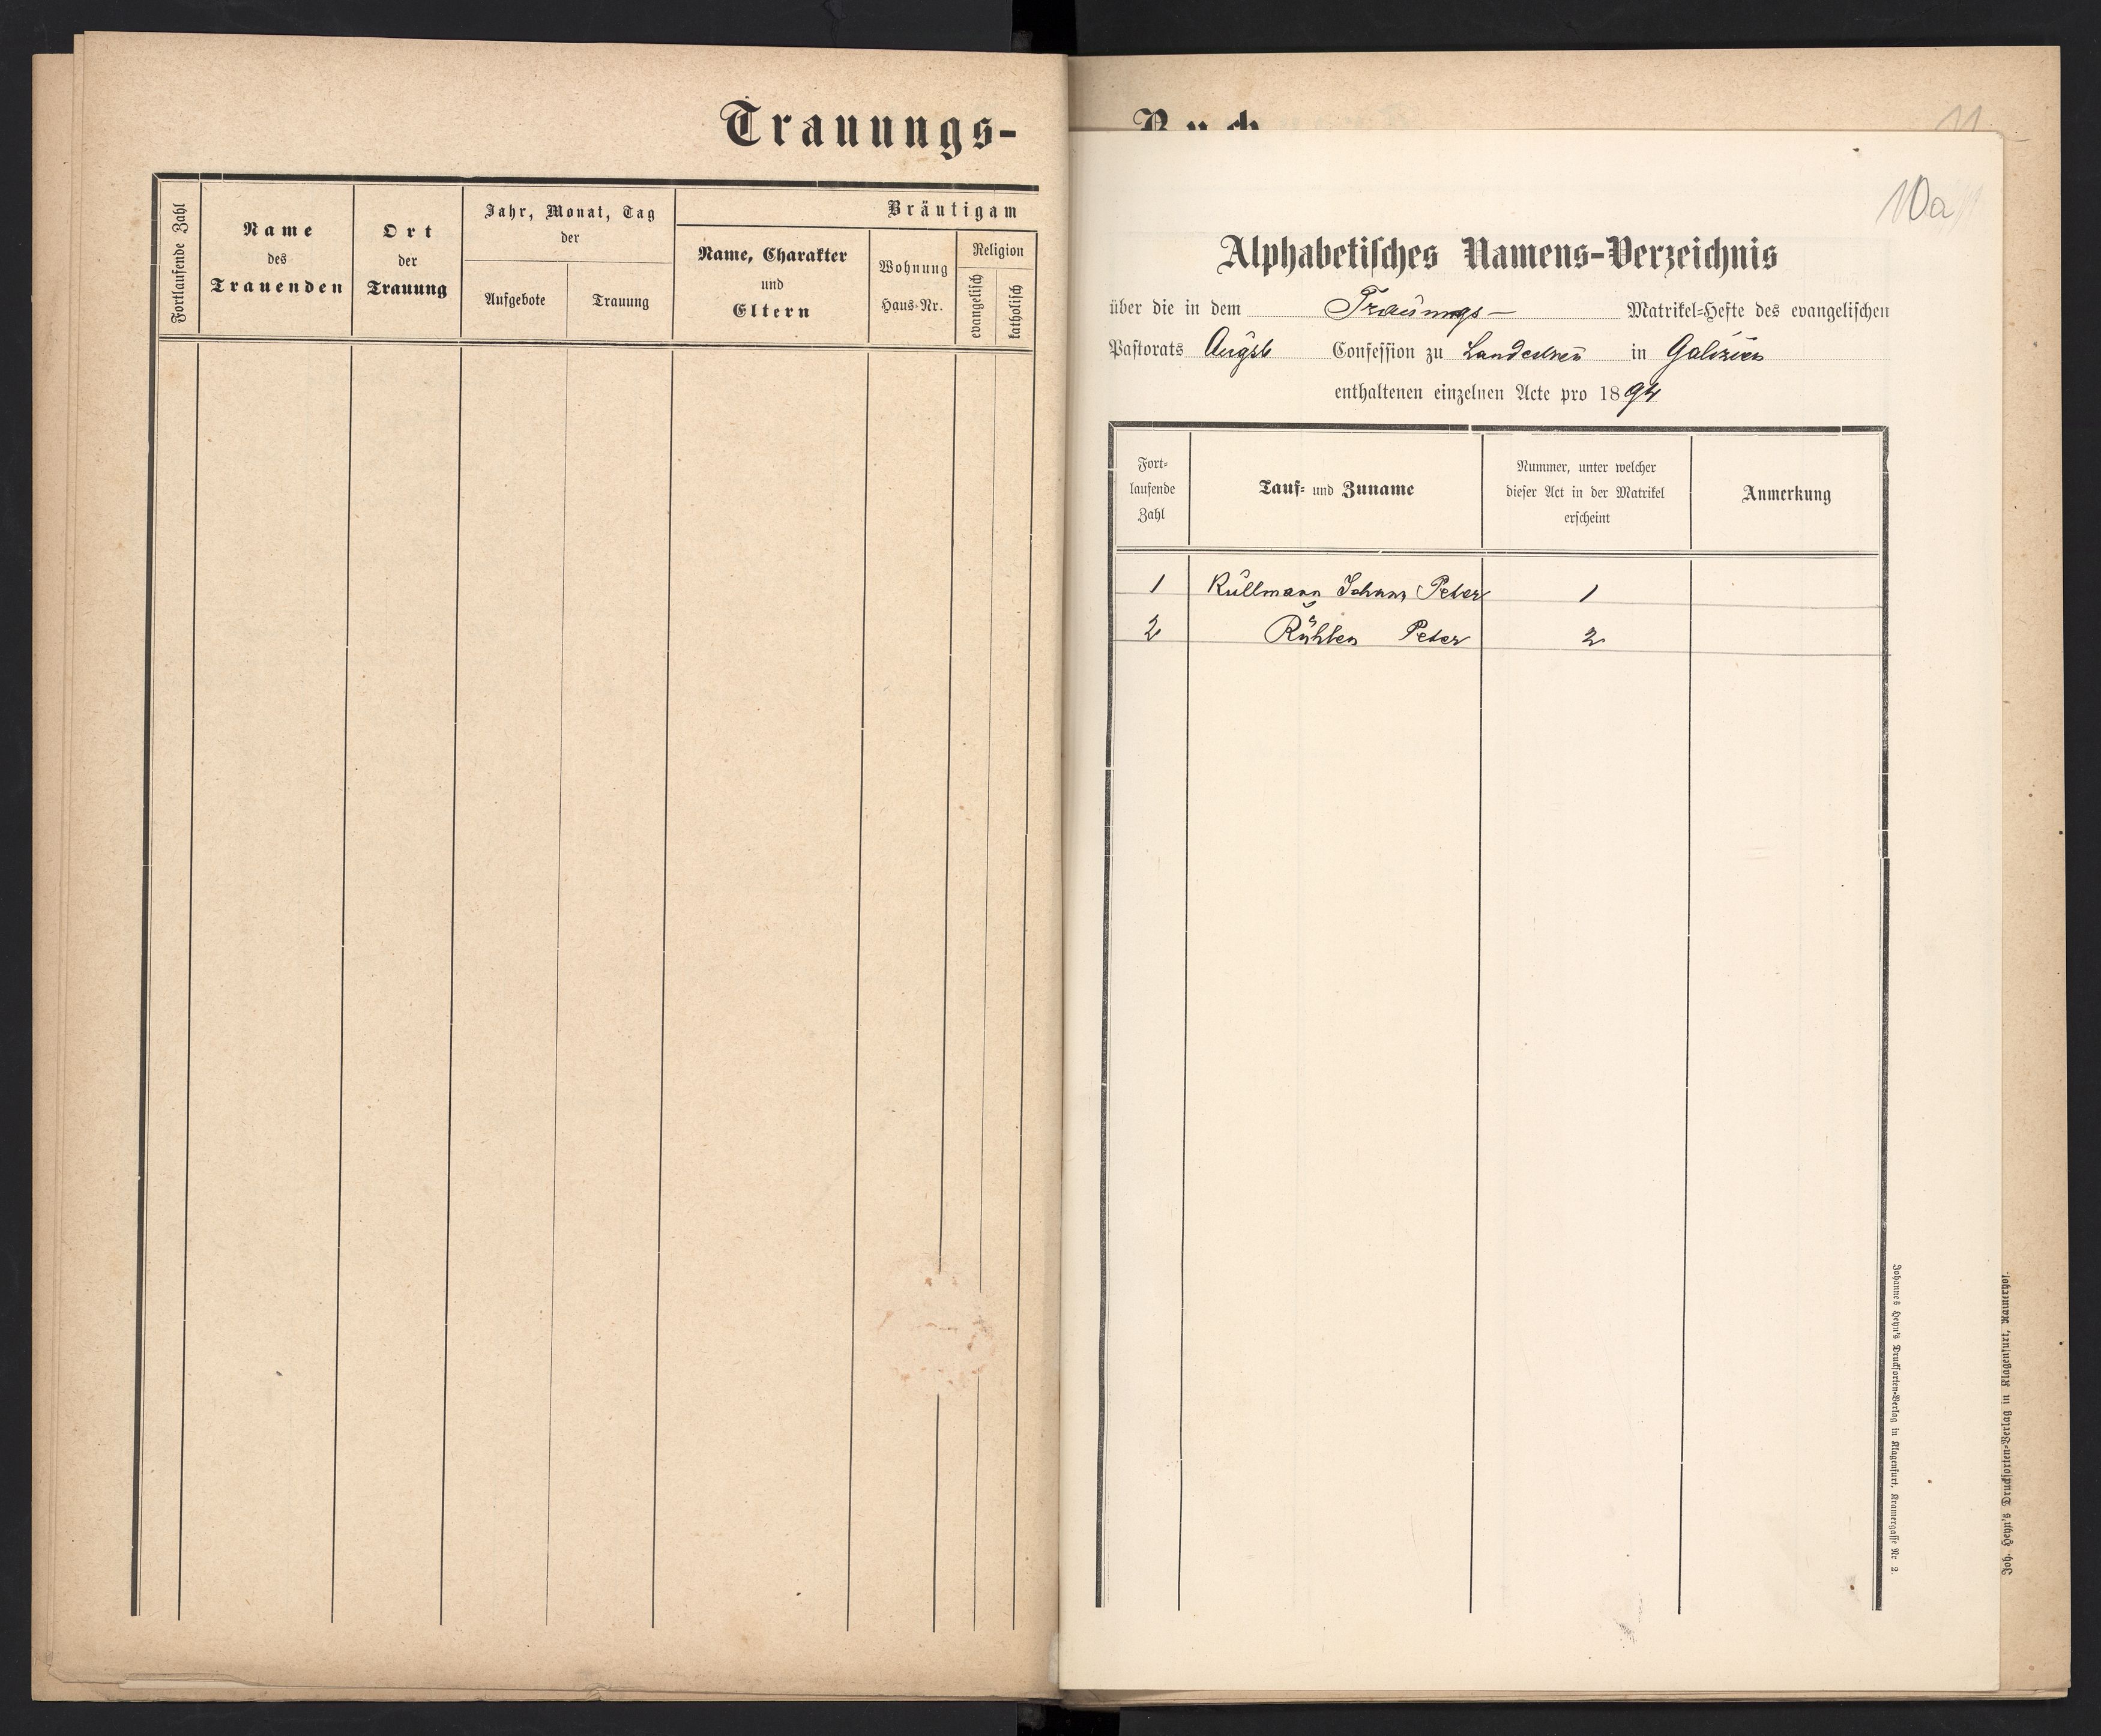 Trauungs-
Fortlaufende Zahl
Name
des
Trauenden
Ort
der
Trauung
Jahr, Monat, Tag
der
Aufgebote
Trauung
Bräutigam
Name, Charakter
und
Eltern
Wohnung
Haus-Nr.
Religion
evangelisch
katholisch
Buch
11
10a
Alphabetisches Namens-Verzeichnis
über die in dem Trauungs- Matrikel-Hefte des evangelischen
Pastorats Augsb Confession zu Landestreu in Galizien
enthaltenen einzelnen Acte pro 1894
Fort-
laufende
Zahl
Tauf- und Zuname
Nummer, unter welcher
dieser Act in der Matrikel
erscheint
Anmerkung
1 Kullmann Johann Peter 1
2 Peter 2
Johannes Heyn's Drucksorten-Verlag in Klagenfurt, Kramergasse Nr. 2.
Joh. Heyn's Drucksorten-Verlag in Klagenfurt,